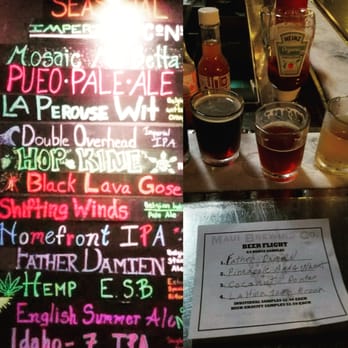 SEASONAL
IMPERIAL
Mosaic
PUEO·PALE·ALE
LA PEROUSE WIT
Double Overhead Imperial IPA
HOP KINE
Black Lava Gose
Shifting Winds Belgian Pale Ale
Homefront IPA
FATHER DAMIEN
HEMP E.S.B
English Summer Ale
Idaho-7 IPA
HEINZ
MAUI BREWING CO.
BEER FLIGHT
1. Father Damien
2. Pineapple Mana Wheat
3. Coconut Porter
4.